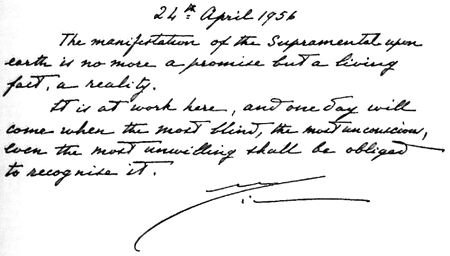 24th April 1956
The manifestation of the Supramental upon
earth is no more a promise but a living
fact, a reality.
It is at work here, and one day will
come when the most blind, the most unconscious,
even the most unwilling shall be obliged
to recognise it.